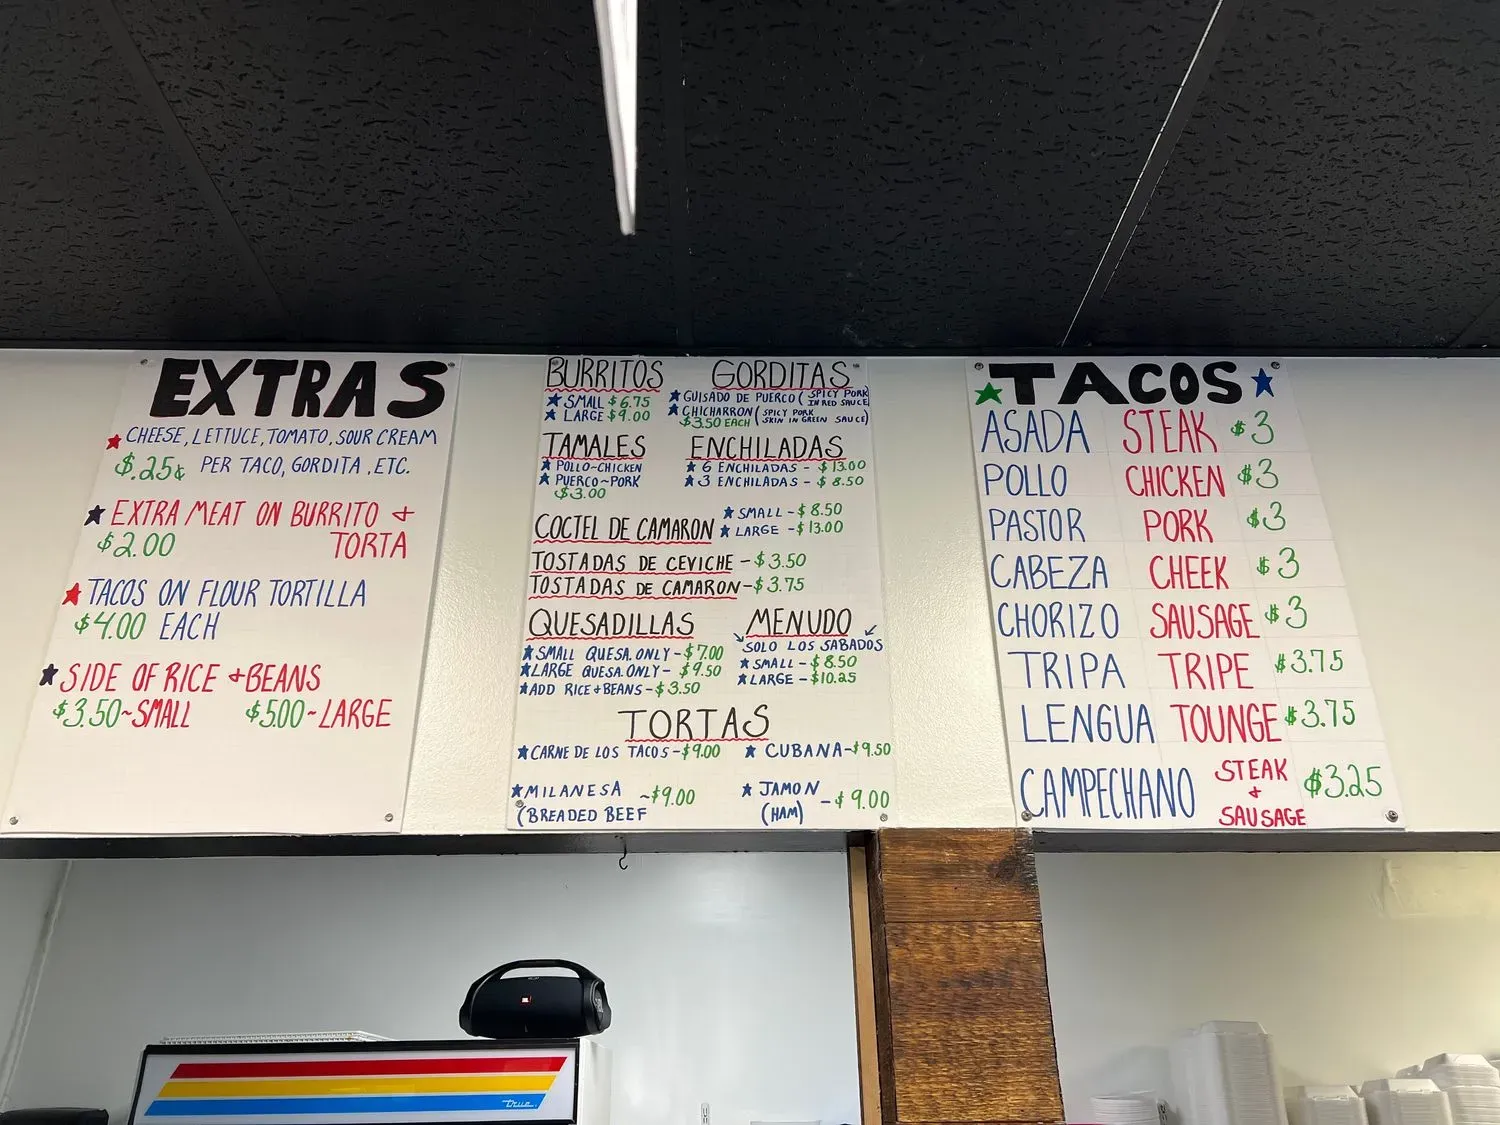 EXTRAS
★ CHEESE, LETTUCE, TOMATO, SOUR CREAM
$.25¢ PER TACO, GORDITA, ETC.
★ EXTRA MEAT ON BURRITO &
$2.00 TORTA
★ TACOS ON FLOUR TORTILLA
$4.00 EACH
★ SIDE OF RICE & BEANS
$3.50~SMALL $5.00~LARGE
BURRITOS
★ SMALL $6.75
★ LARGE $9.00
GORDITAS
★ GUISADO DE PUERCO (SPICY PORK
IN RED SAUCE
★ CHICHARRON (SPICY PORK
$3.50 EACH SKIN IN GREEN SAUCE)
TAMALES
★ POLLO-CHICKEN
★ PUERCO~PORK
$3.00
ENCHILADAS
★ 6 ENCHILADAS - $13.00
★ 3 ENCHILADAS - $8.50
COCTEL DE CAMARON
★ SMALL - $8.50
★ LARGE - $13.00
TOSTADAS DE CEVICHE - $3.50
TOSTADAS DE CAMARON - $3.75
QUESADILLAS
★ SMALL QUESA. ONLY - $7.00
★ LARGE QUESA. ONLY - $9.50
★ ADD RICE & BEANS - $3.50
MENUDO
SOLO LOS SABADOS
★ SMALL - $8.50
★ LARGE - $10.25
TORTAS
★ CARNE DE LOS TACOS - $9.00
★ CUBANA - $9.50
★ MILANESA ~$9.00
(BREADED BEEF
★ JAMON - $9.00
(HAM)
★ TACOS ★
ASADA STEAK $3
POLLO CHICKEN $3
PASTOR PORK $3
CABEZA CHEEK $3
CHORIZO SAUSAGE $3
TRIPA TRIPE $3.75
LENGUA TOUNGE $3.75
CAMPECHANO STEAK & SAUSAGE $3.25
JBL
True